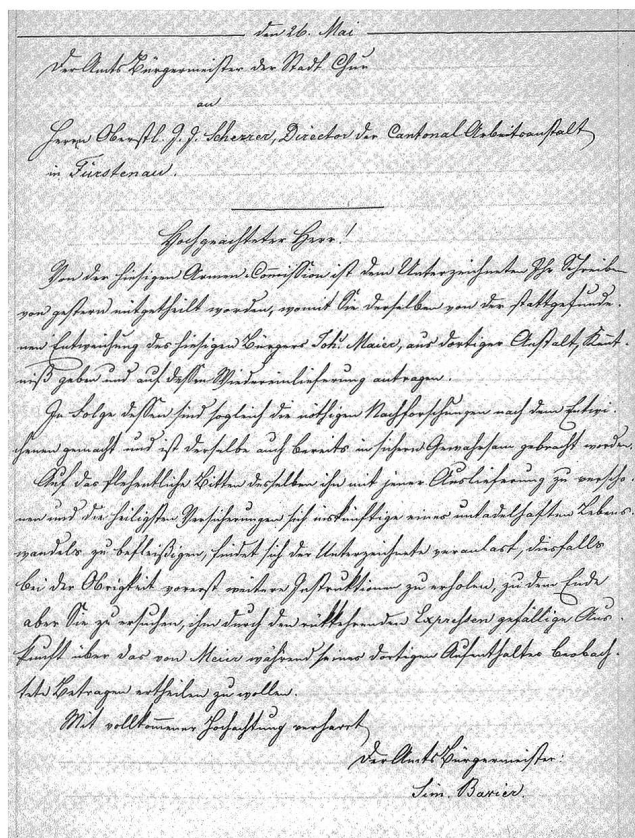 den 26. Mai
Der Amts Bürgermeister der Stadt Chur
an
Herrn Oberstl. J. J. Scherrer, Director der Cantonal Arbeitsanstalt
in Fürstenau.
Hochgeachteter Herr!
Von der hiesigen Armen Commission ist dem Unterzeichneten Ihr Schreiben
von gestern mitgetheilt worden, womit Sie derselben von der stattgefunde-
nen Entweichung des hiesigen Bürgers Joh. Maier, aus dortiger Anstalt, Kennt-
niß geben und auf dessen Wiedereinlieferung antragen.
In Folge dessen sind sogleich die nöthigen Nachforschungen nach dem Entwi-
chenen gemacht und ist derselbe auch bereits in sichern Gewahrsam gebracht worden.
Auf das flehentliche Bitten desselben ihn mit jener Auslieferung zu verscho-
nen und die heiligsten Versicherungen sich inskünftige eines untadelhaften Lebens-
wandels zu befleißigen, findet sich der Unterzeichnete veranlast, diesfalls
bei der Obrigkeit vorerst weitere Instruktionen zu erholen, zu dem Ende
aber Sie zu ersuchen, ihm durch den rükkehrenden Expressen gefällige Aus-
kunft über das von Meier während seines dortigen Aufenthaltes beobach-
tete Betragen ertheilen zu wollen.
Mit vollkommener Hochachtung verharrt
Der Amts Bürgermeister:
Sim. Bavier.